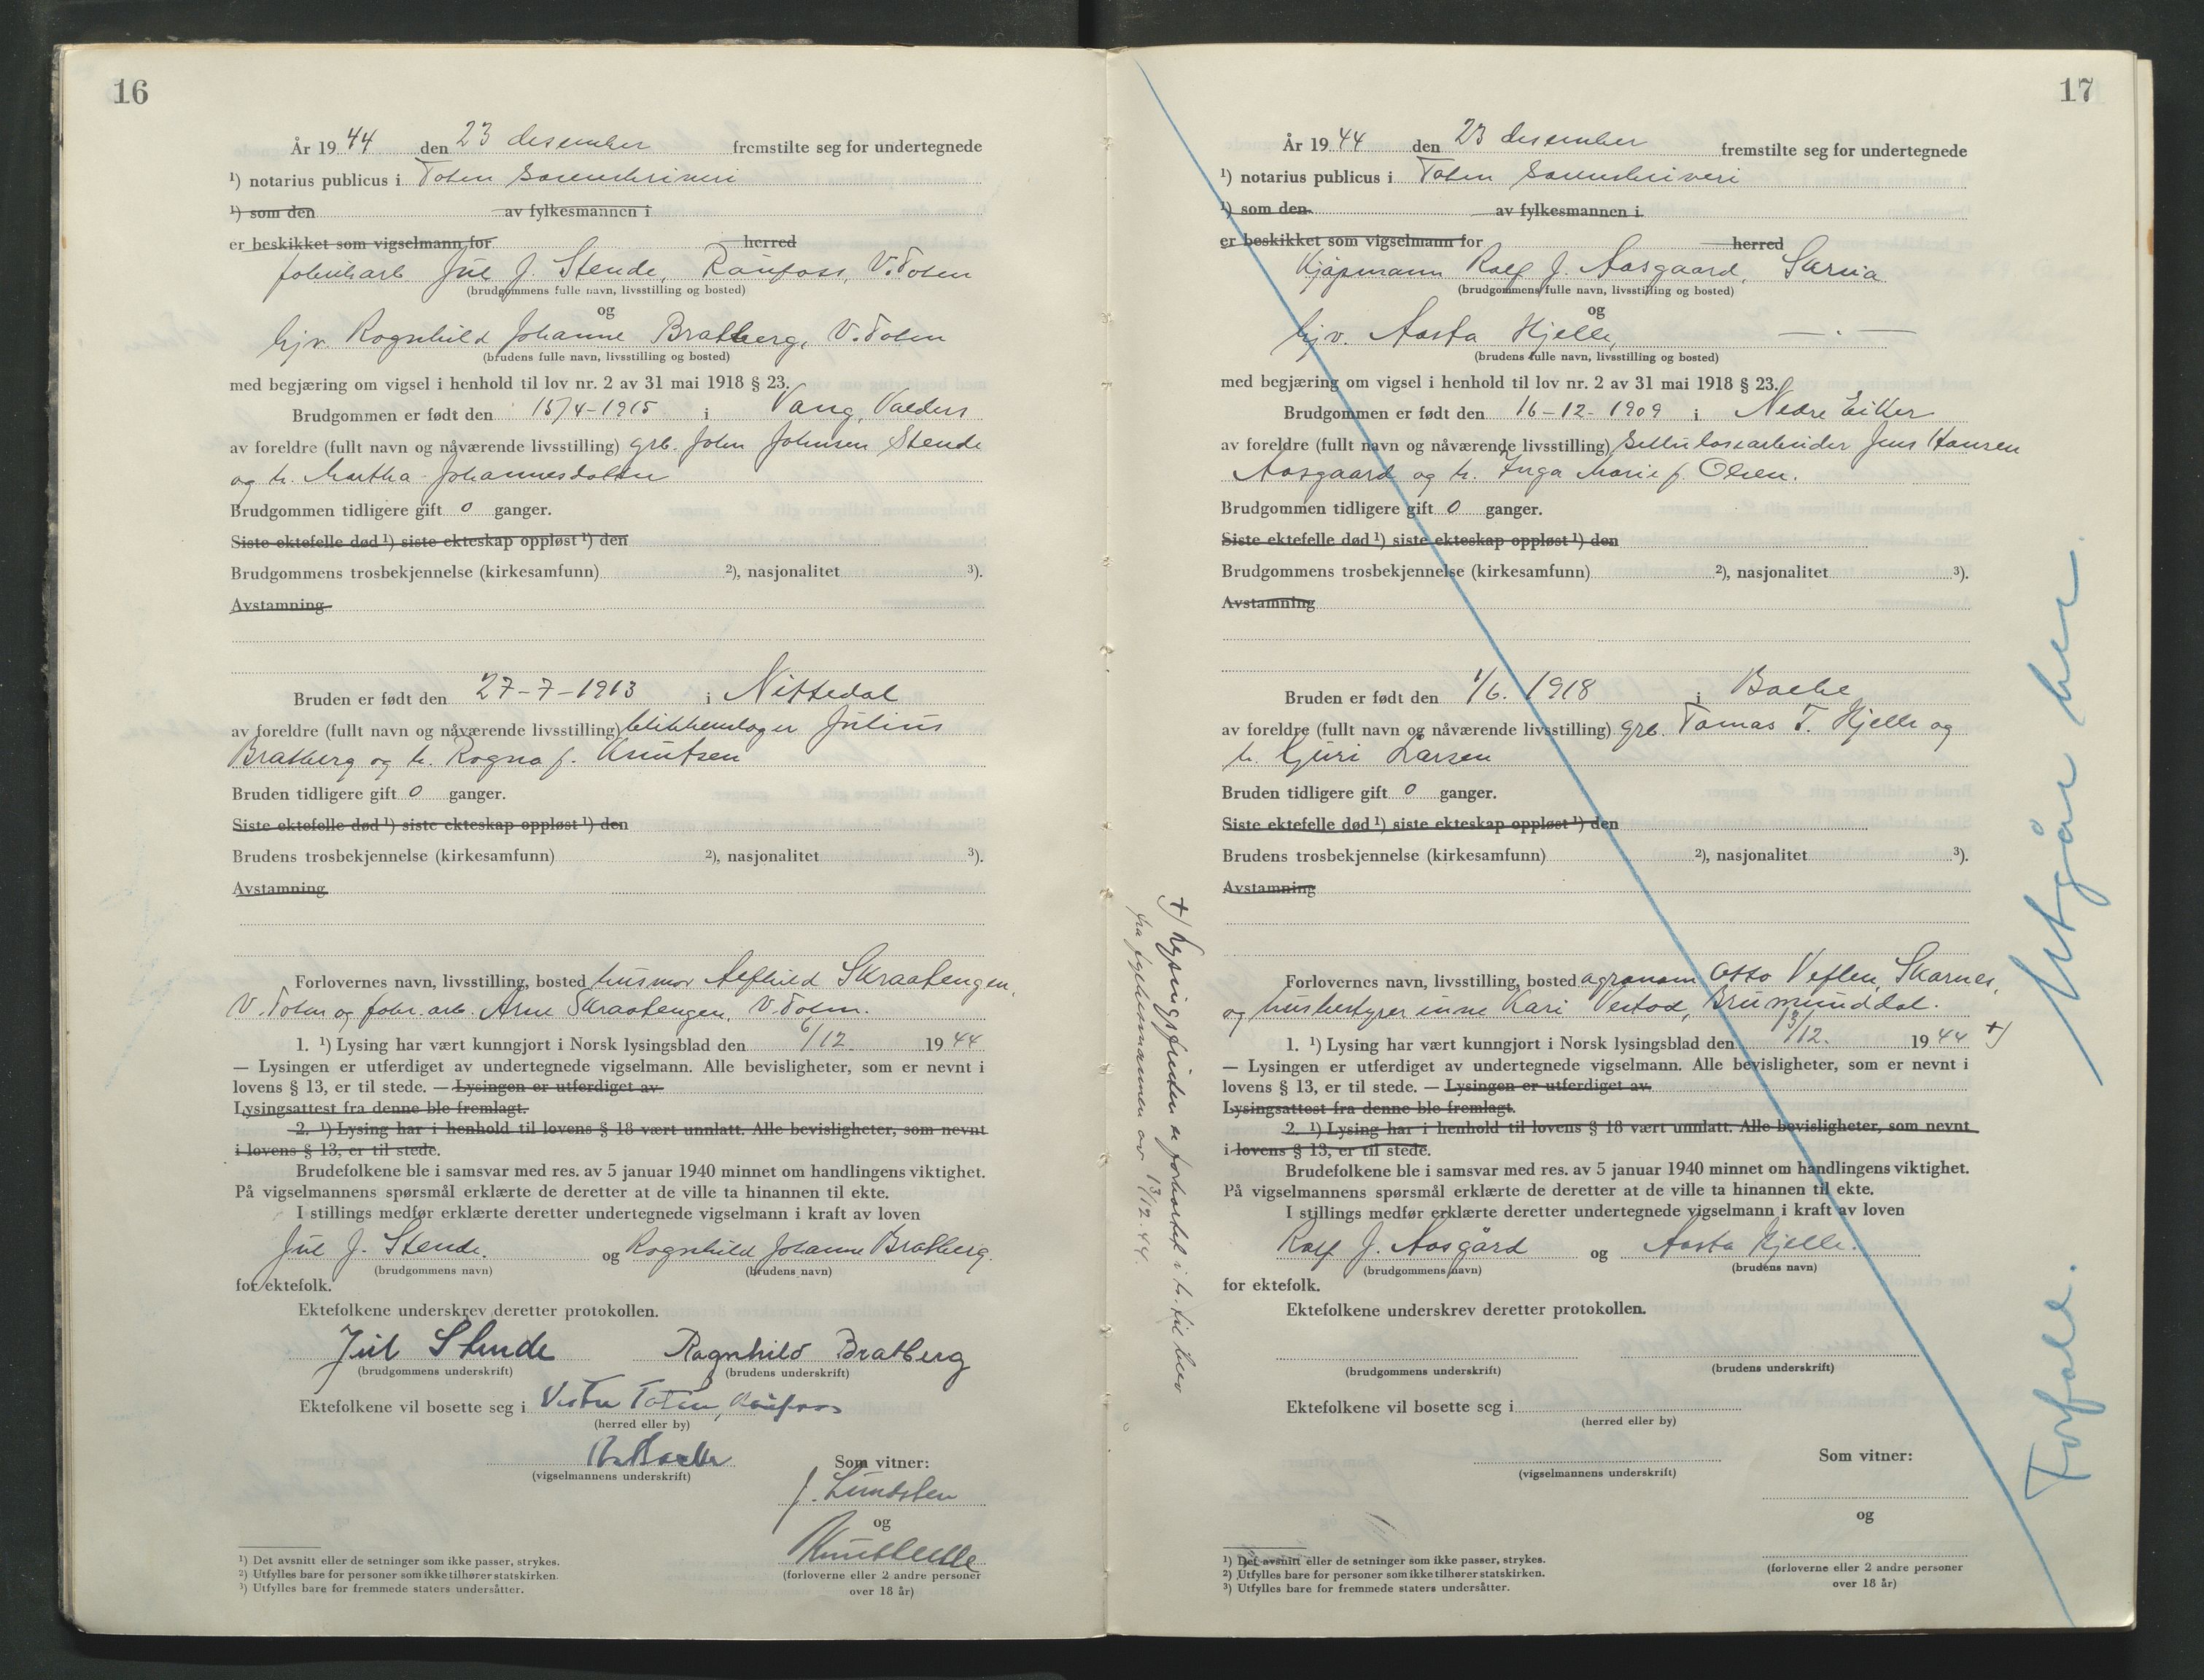 16
År 19 44 den 23 desember fremstilte seg for undertegnede
¹) notarius publicus i Toten Sorenskriveri
¹) som den av fylkesmannen i
er beskikket som vigselmann for herred
Jul J. Stende, Raufoss, V. Toten
(brudgommens fulle navn, livsstilling og bosted)
og
hjv. Ragnhild Johanne Bratberg, V. Toten
(brudens fulle navn, livsstilling og bosted)
med begjæring om vigsel i henhold til lov nr. 2 av 31 mai 1918 § 23.
Brudgommen er født den 15/4-1915 i Vang, Valdres
av foreldre (fullt navn og nåværende livsstilling) grb. John Johnsen Stende
og h. Martha Johannesdatter
Brudgommen tidligere gift 0 ganger.
Siste ektefelle død ¹) siste ekteskap oppløst ¹) den
Brudgommens trosbekjennelse (kirkesamfunn) ²), nasjonalitet ³).
Avstamning
Bruden er født den 27-7-1913 i Nittedal
av foreldre (fullt navn og nåværende livsstilling) blikkenslager Julius
Bratberg og h. Ragna f. Knutsen
Bruden tidligere gift 0 ganger.
Siste ektefelle død ¹) siste ekteskap oppløst ¹) den
Brudens trosbekjennelse (kirkesamfunn) ²), nasjonalitet ³).
Avstamning
Forlovernes navn, livsstilling, bosted husmor Alfhild Skraatengen,
V. Toten og fabr. arb. Arne Skraatengen, V. Toten.
1. ¹) Lysing har vært kunngjort i Norsk lysingsblad den 6/12. 19 44
— Lysingen er utferdiget av undertegnede vigselmann. Alle bevisligheter, som er nevnt i
lovens § 13, er til stede. — Lysingen er utferdiget av
Lysingsattest fra denne ble fremlagt.
2. ¹) Lysing har i henhold til lovens § 18 vært unnlatt. Alle bevisligheter, som nevnt
i lovens § 13, er til stede.
Brudefolkene ble i samsvar med res. av 5 januar 1940 minnet om handlingens viktighet.
På vigselmannens spørsmål erklærte de deretter at de ville ta hinannen til ekte.
I stillings medfør erklærte deretter undertegnede vigselmann i kraft av loven
Jul J. Stende. og Ragnhild Johanne Bratberg.
(brudgommens navn) (brudens navn)
for ektefolk.
Ektefolkene underskrev deretter protokollen.
Jul Stende Ragnhild Bratberg
(brudgommens underskrift) (brudens underskrift)
Ektefolkene vil bosette seg i Vestre Toten, Raufoss
(herred eller by)
(vigselmannens underskrift)
Som vitner:
J. Lundsten
og
(forloverne eller 2 andre personer
over 18 år)
¹) Det avsnitt eller de setninger som ikke passer, strykes.
²) Utfylles bare for personer som ikke tilhører statskirken.
³) Utfylles bare for fremmede staters undersåtter.
17
År 19 44 den 23 desember fremstilte seg for undertegnede
¹) notarius publicus i Toten Sorenskriveri
¹) som den av fylkesmannen i
er beskikket som vigselmann for herred
Kjøpmann Rolf J. Aasgaard, Skreia
(brudgommens fulle navn, livsstilling og bosted)
og
hjv. Aasta Hjelle, — . —
(brudens fulle navn, livsstilling og bosted)
med begjæring om vigsel i henhold til lov nr. 2 av 31 mai 1918 § 23.
Brudgommen er født den 16-12-1909 i Nedre Eiker
av foreldre (fullt navn og nåværende livsstilling) sellulosearbeider Jens Hansen
Aasgaard og h. Inga Marie f. Olsen.
Brudgommen tidligere gift 0 ganger.
Siste ektefelle død ¹) siste ekteskap oppløst ¹) den
Brudgommens trosbekjennelse (kirkesamfunn) ²), nasjonalitet ³).
Avstamning
Bruden er født den 1/6. 1918 i
av foreldre (fullt navn og nåværende livsstilling) grb. Tomas T. Hjelle og
h. Guri Larsen
Bruden tidligere gift 0 ganger.
Siste ektefelle død ¹) siste ekteskap oppløst ¹) den
Brudens trosbekjennelse (kirkesamfunn) ²), nasjonalitet ³).
Avstamning
Forlovernes navn, livsstilling, bosted agronom Otto Veflen, Skarnes,
og husbestyrerinne Kari Brumunddal.
1. ¹) Lysing har vært kunngjort i Norsk lysingsblad den 13/12. 19 44 +)
— Lysingen er utferdiget av undertegnede vigselmann. Alle bevisligheter, som er nevnt i
lovens § 13, er til stede. — Lysingen er utferdiget av
Lysingsattest fra denne ble fremlagt.
2. ¹) Lysing har i henhold til lovens § 18 vært unnlatt. Alle bevisligheter, som nevnt
i lovens § 13, er til stede.
Brudefolkene ble i samsvar med res. av 5 januar 1940 minnet om handlingens viktighet.
På vigselmannens spørsmål erklærte de deretter at de ville ta hinannen til ekte.
I stillings medfør erklærte deretter undertegnede vigselmann i kraft av loven
Rolf J. Aasgård og Aasta Hjelle.
(brudgommens navn) (brudens navn)
for ektefolk.
Ektefolkene underskrev deretter protokollen.
(brudgommens underskrift) (brudens underskrift)
Ektefolkene vil bosette seg i
(herred eller by)
(vigselmannens underskrift)
Som vitner:
og
(forloverne eller 2 andre personer
over 18 år)
¹) Det avsnitt eller de setninger som ikke passer, strykes.
²) Utfylles bare for personer som ikke tilhører statskirken.
³) Utfylles bare for fremmede staters undersåtter.
+) Lysingsfristen er forkortet i h. til brev
fra fylkesmannen av 13/12.44.
Forfall. Utgår her.